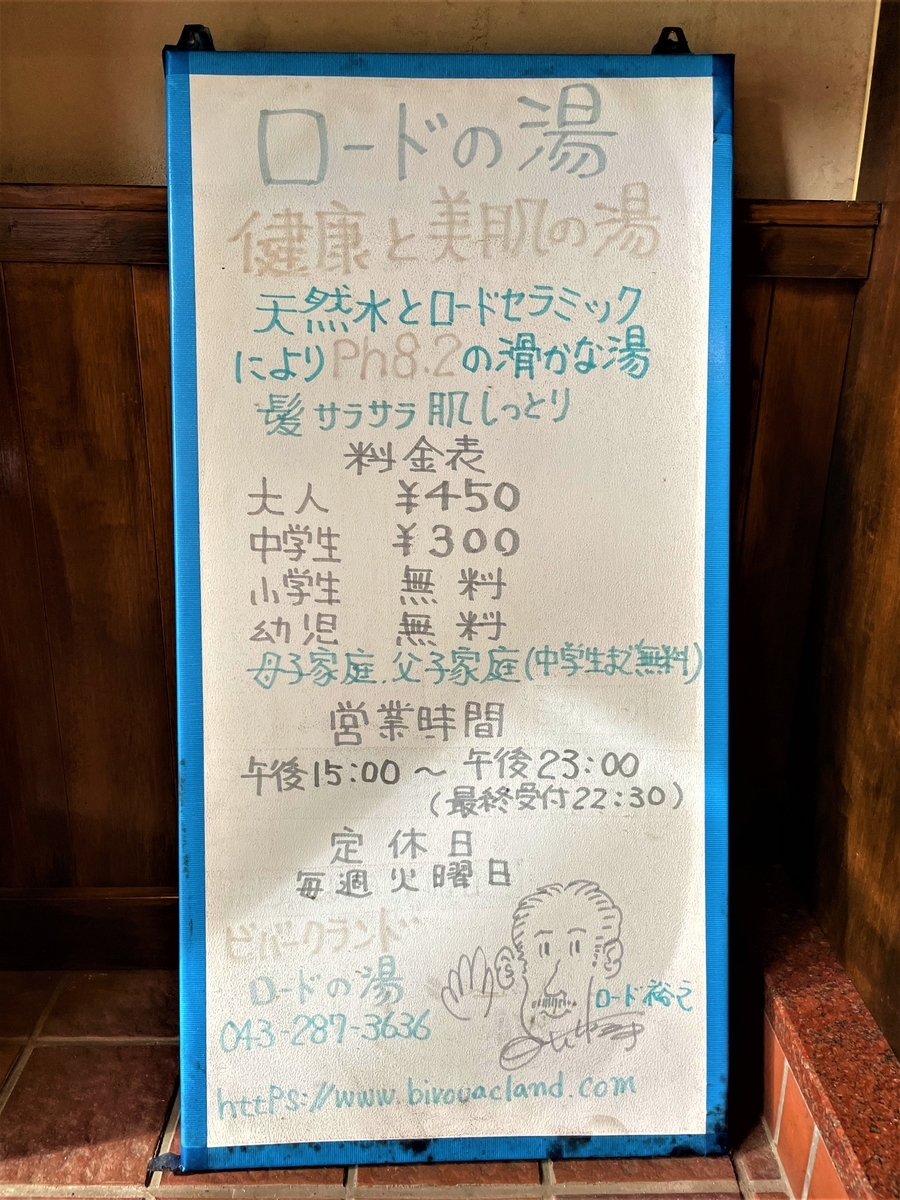 ロードの湯
健康と美肌の湯
天然水とロードセラミック
によりPh8.2の滑かな湯
髪サラサラ肌しっとり
料金表
大人 ¥450
中学生 ¥300
小学生 無料
幼児 無料
母子家庭.父子家庭(中学生まで無料)
営業時間
午後15:00～午後23:00
(最終受付22:30)
定休日
毎週火曜日
ビバークランド
ロードの湯
043-287-3636
ロード裕之
https://www.bivouacland.com